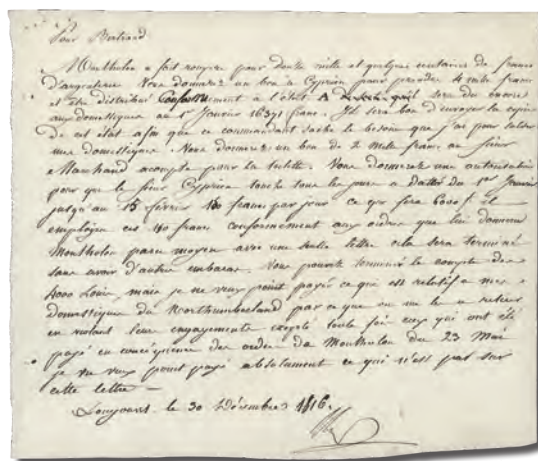 Pour Bertrand
Montholon a fait rompre pour deux mille et quelque centaines de francs
d'argenterie Vous donnerez un bon a Cyprien pour prendre 4 mille francs
et être distribué Conformement a l'état A qu'il sera du encore
aux domestiques au 1er Janvier 16371 francs. Il sera bon d'envoyer la copie
de cet état afin que ce commandant sache le besoin que j'ai pour solder
mes domestiques. Vous donnerez un bon de 2 mille francs au Sieur
Marchand acompte pour la toilette. Vous donnerez une autorisation
pour que le Sieur Cyprien touche tous les jours a datter du 1er Janvier
jusqu'au 15 février francs par jour ce qui fera 6000 f il
employera ces francs conformement aux ordres que lui donnera
Montholon par ce moyen avec une seule lettre cela sera terminé
sans avoir d'autre embaras. Vous pouvez terminer le compte des
4000 Louis, mais je ne veux point payer ce qui est relatif a mes
domestiques du Northumberland par ce que on me le a retenu
en violant leurs engagements excepté toute fois ceux qui ont été
payé en conséquence des ordres de Montholon du 23 Mai
je ne veux point payé absolument ce qui n'est pas sur
cette lettre —
Longwood le 30 Décembre 1816.